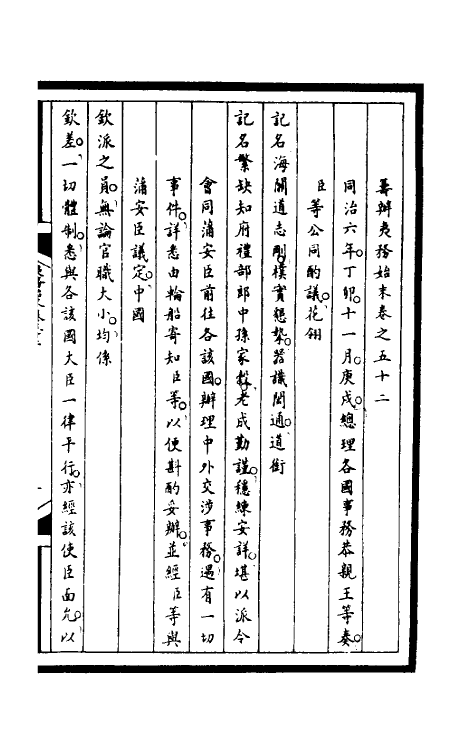 籌辦夷務始末卷之五十二
同治六年。丁卯。十一月。庚戌。總理各國事務恭親王等奏。
臣等公同酌議。花翎
記名海關道志剛。樸實懇摯。器識閎通。道銜
記名繁缺知府禮部郎中孫家穀。老成勤謹。穩練安詳。堪以派令
會同蒲安臣前往各該國。辦理中外交涉事務。遇有一切
事件。詳悉由輪船寄知臣等。以便斟酌妥辦。並經臣等與
蒲安臣議定。中國
欽派之員。無論官職大小。均係
欽差。一切體制。悉與各該國大臣一律平行。亦經該使臣面允。以